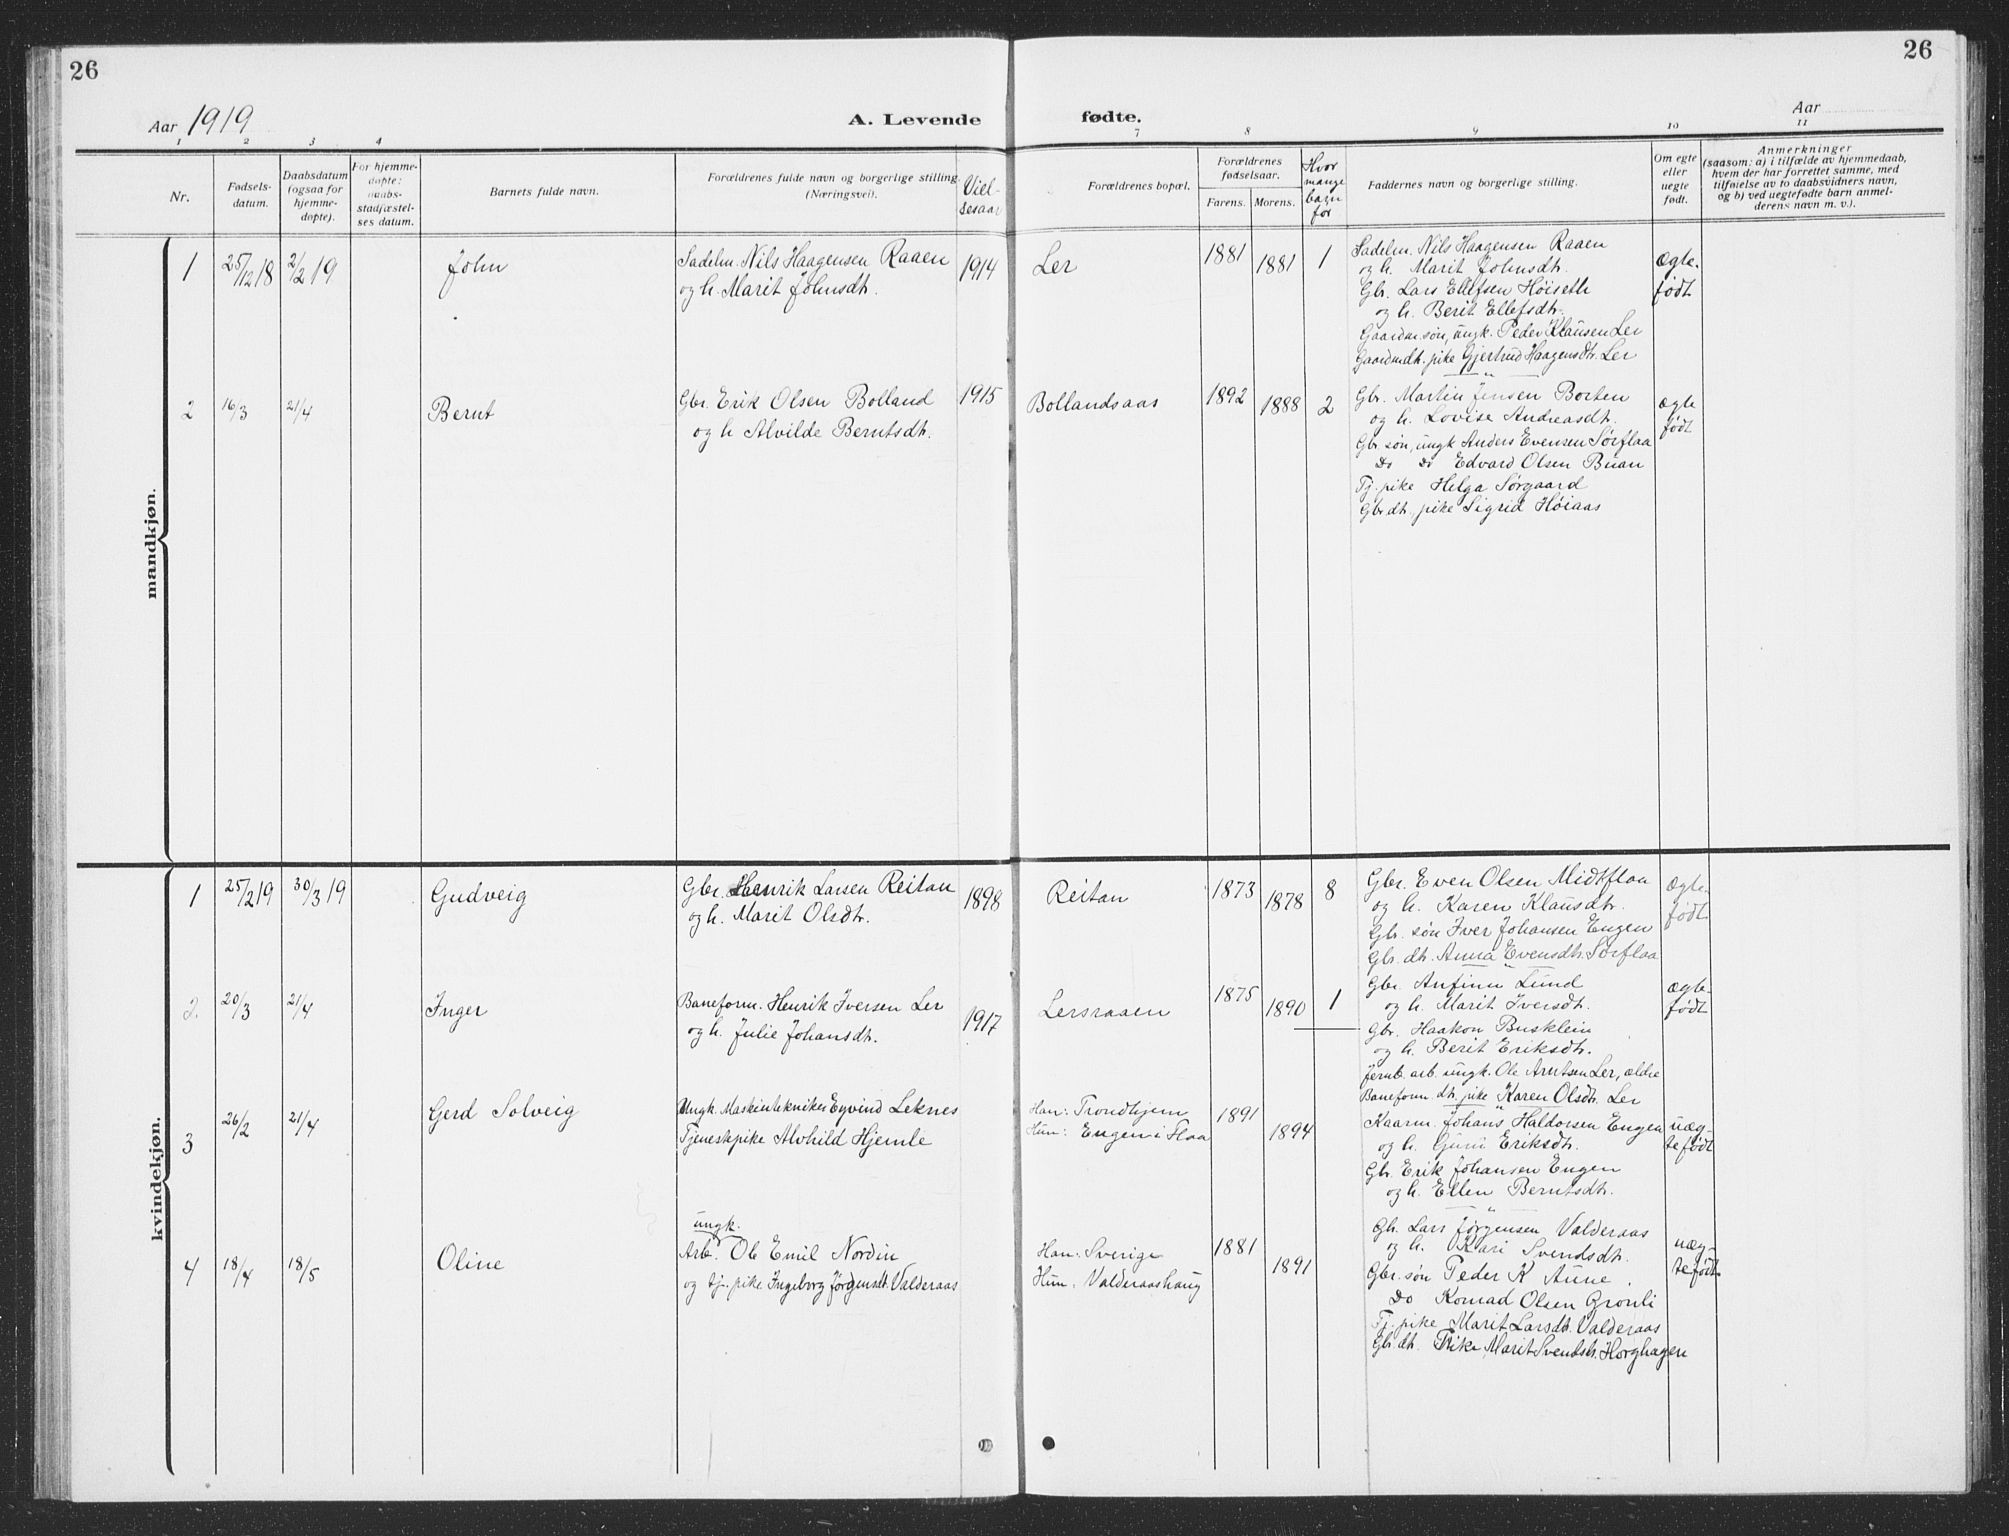 26
26
Aar 1919
A. Levende
fødte.
Aar
1 2 3 4
7 8 9 10 11
Nr.
Fødsels-
datum.
Daabsdatum
(ogsaa for
hjemme-
døpte).
For hjemme-
døpte:
daabs-
stadfæstel-
ses datum.
Barnets fulde navn.
Forældrenes fulde navn og borgerlige stilling
(Næringsvei).
Viel-
sesaar
Forældrenes bopæl.
Forældrenes
fødselsaar.
Farens. Morens.
Hvor
mange
barn
før
Faddernes navn og borgerlige stilling.
Om egte
eller
uegte
født.
Anmerkninger
(saasom: a) i tilfælde av hjemmedaab,
hvem der har forrettet samme, med
tilføielse av to daabsvidners navn,
og b) ved uegtefødte barn anmel-
derens navn m. v.).
mandkjøn.
1 25/12 18 2/2 19 John
Sadelm. Nils Haagensen Raaen
og h. Marit Johnsdtr.
1914 Ler 1881 1881 1
Sadelm. Nils Haagensen Raaen
og h. Marit Johnsdtr.
Gbr. Lars Ellefsen Høiseth
og h. Berit Ellefsdtr.
Gaardm. søn, ungk. Peder Klausen Ler
Gaardmdtr. pike Gjertrud Haagensdtr. Ler
Ægte-
født
2 16/3 21/4 Bernt
Gbr. Erik Olsen Bolland
og h Alvilde Berntsdtr.
1915 Bollandsaas 1892 1888 2
Gbr. Martin Jensen Borten
og h. Lovise Andreasdtr.
Gbr. søn, ungk Anders Evensen Sørflaa
Do Do Edvard Olsen Buan
Tj. pike Helga Sørgaard
Gbr dtr., pike Sigrid Høiaas
ægte
født
kvindekjøn.
1 25/2 19 30/3 19 Gudveig
Gbr. Henrik Larsen Reitan
og h. Marit Olsdtr.
1898 Reitan 1873 1878 8
Gbr. Even Olsen Midtflaa
og h. Karen Klausdtr.
Gbr. søn Iver Johansen Engen
Gbr. dtr. Anna Evensdtr. Sørflaa
Ægte-
født
2. 20/3 21/4 Inger
Baneform. Henrik Iversen Ler
og h. Julie Johansdtr.
1917 Lersraaen 1875 1890 1
Gbr. Anfinn Lund
og h. Marit Iversdtr.
Gbr. Haakon Busklein
og h. Berit Eriksdtr.
Jernb. arb. ungk. Ole Arntsen Ler, ældre
Baneform dtr. pike Karen Olsdtr. Ler
ægte-
født
3 26/2 21/4 Gerd Solveig
Ungk. Maskintekniker Eyvind Leknes
Tjenestepike Alvhild Hjemle
Han: Trondhjem
Hun: Engen i Flaa
1891 1894
Kaarm. Johans Haldorsen Engen
og h. Guru Eriksdtr.
Gbr. Erik Johansen Engen
og h. Ellen Berntsdtr.
uæg-
te født
4 18/4 18/5 Oline
ungk.
Arb. Ole Emil Nordin
og tj. pike Ingeborg Jørgensdt. Valderaas
Han: Sverige
Hun. Valderaashaug
1881 1891
Gbr. Lars Jørgensen Valderaas
og h. Kari Svendsdtr.
Gbr. søn Peder K Aune.
Do Konrad Olsen Grønli
Tj. pike Marit Larsdtr. Valderaas
Gbr. dtr. Pike Marit Svendsdtr. Horghagen
uæg-
te født.